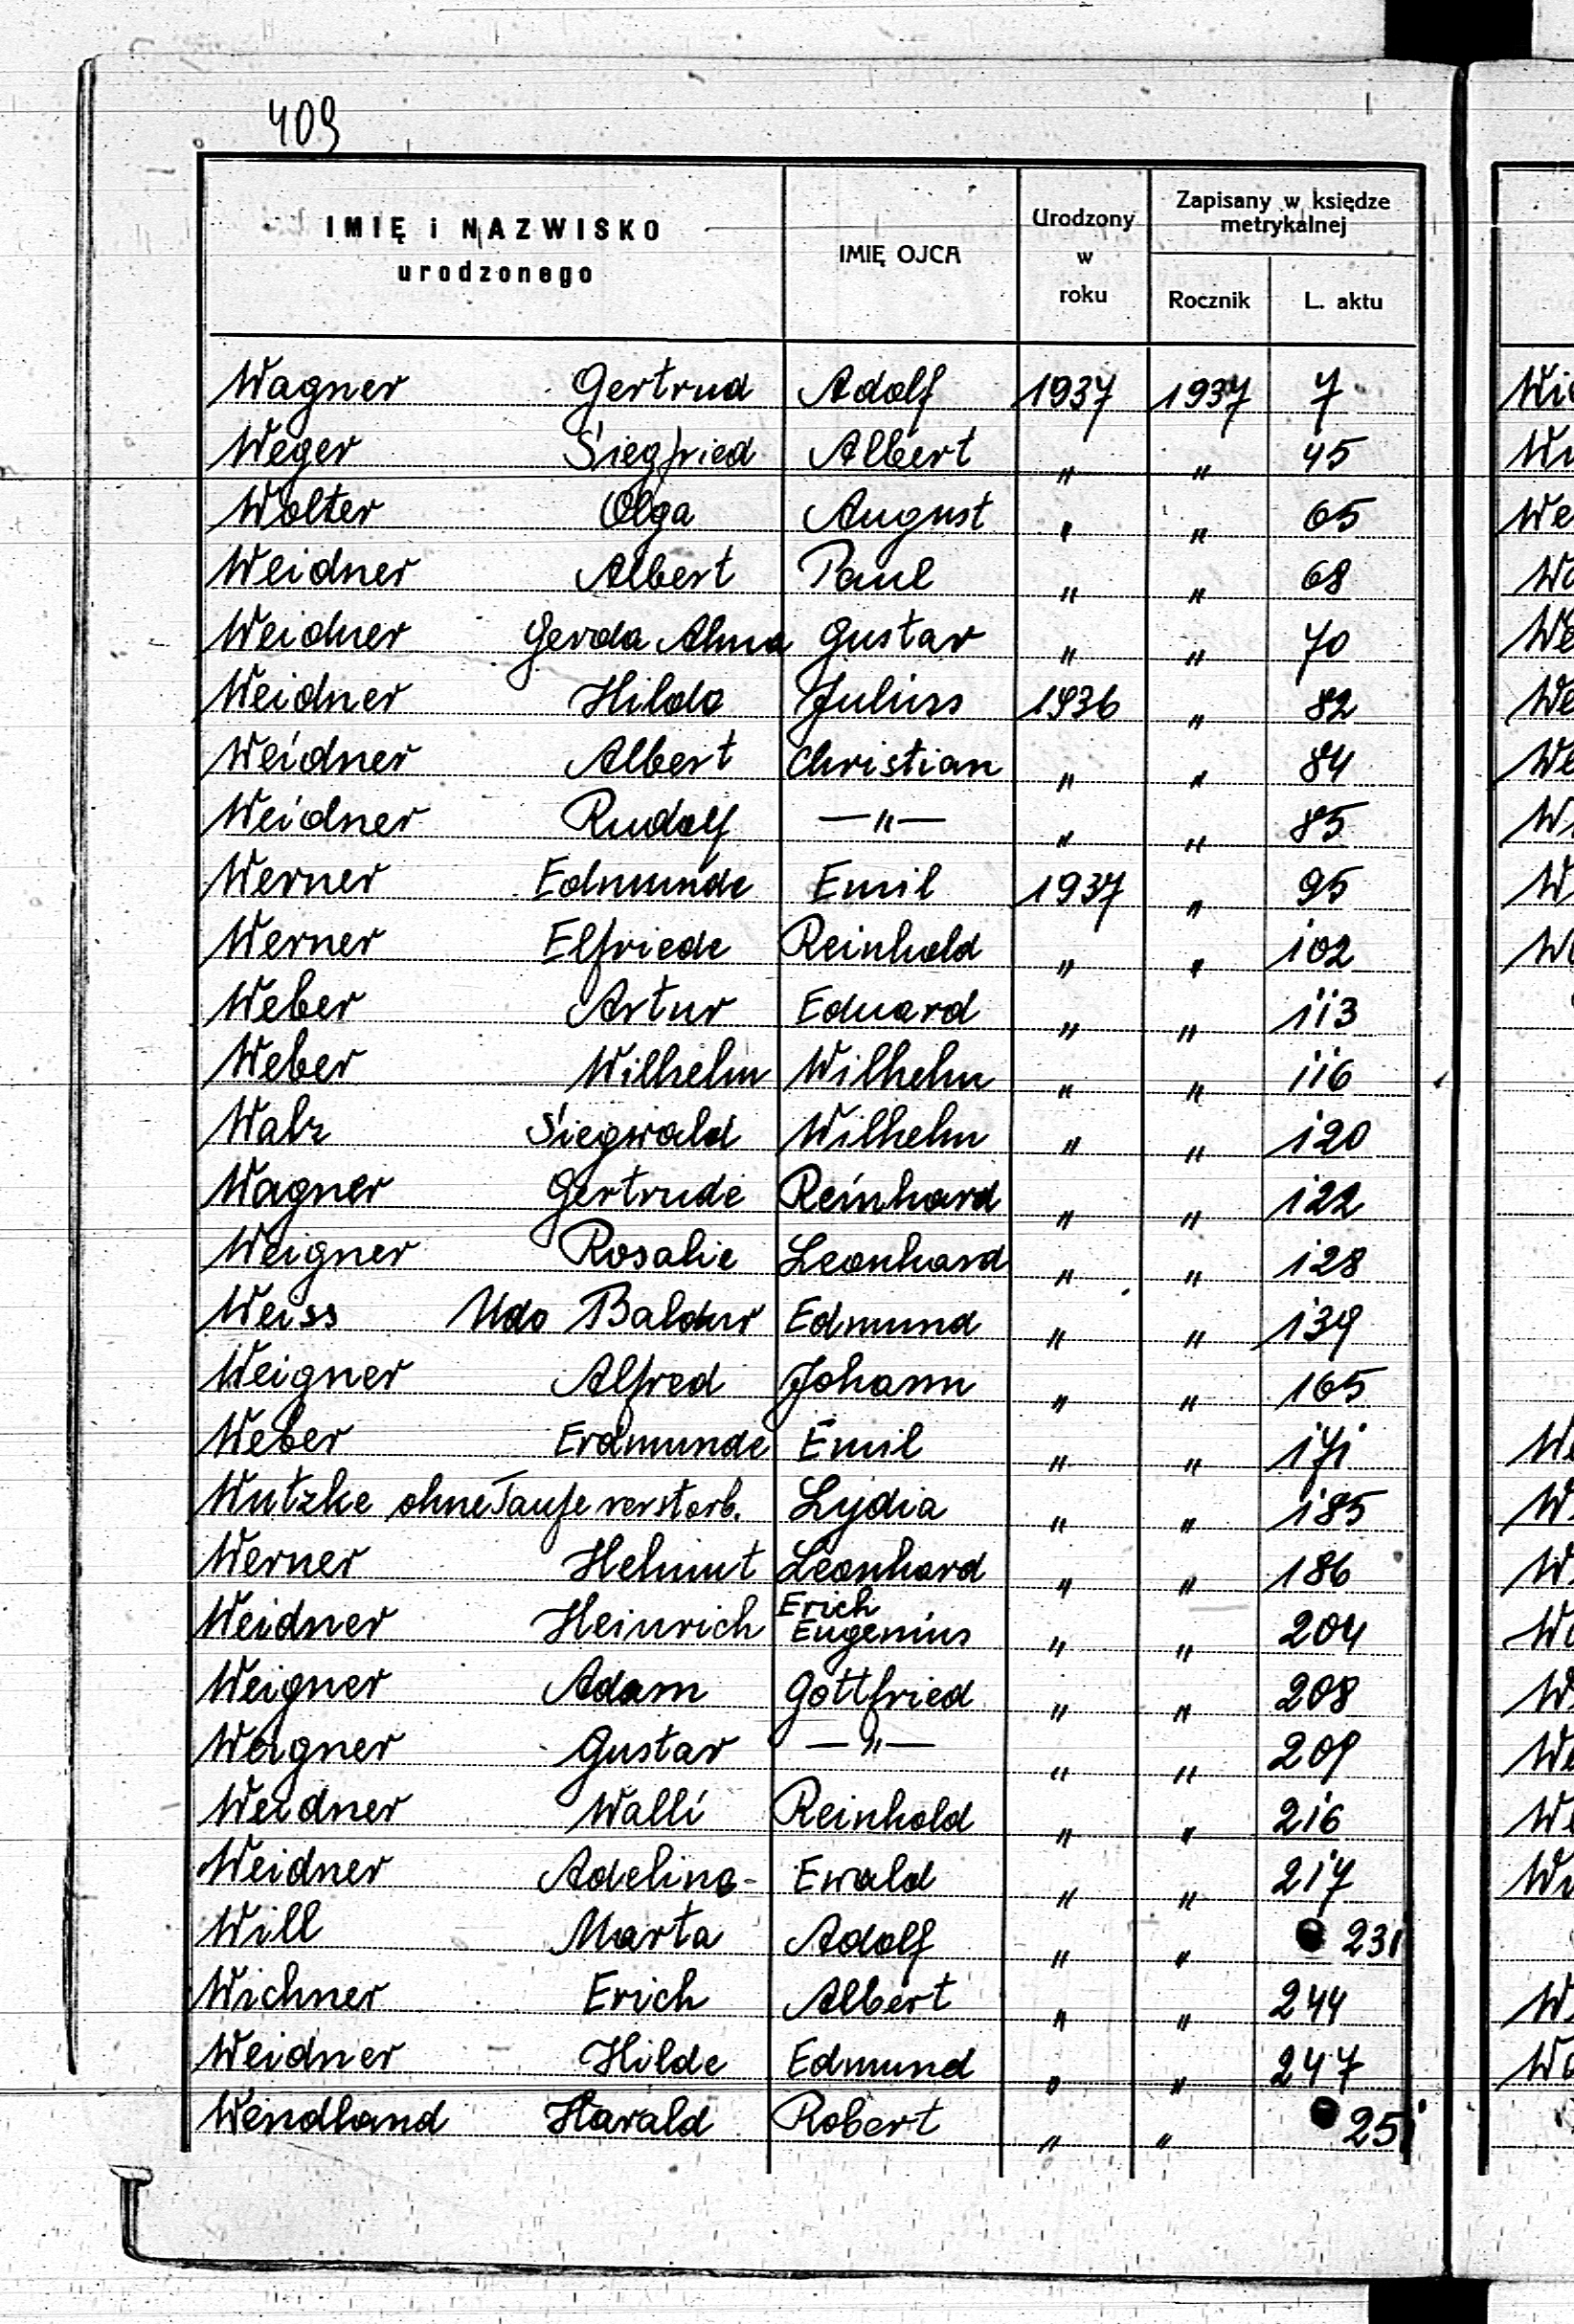 409
IMIĘ i NAZWISKO
urodzonego
IMIĘ OJCA
Urodzony
w
roku
Zapisany w księdze
metrykalnej
Rocznik
L. aktu
Wagner Gertrud Adolf 1937 1937 7
Weger Siegfried Albert " " 45
Wolter Olga August " " 65
Weidner Albert Paul " " 68
Weidner Gerda Alma Gustav " " 70
Weidner Hilda Julius 1936 " 82
Weidner Albert Christian " " 84
Weidner Rudolf —"— " " 85
Werner Edmunde Emil 1937 " 95
Werner Elfriede Reinhold " " 102
Weber Artur Eduard " " 113
Weber Wilhelm Wilhelm " " 116
Walz Siegwald Wilhelm " " 120
Wagner Gertrude Reinhard " " 122
Weigner Rosalie Leonhard " " 128
Weiss Udo Baldur Edmund " " 139
Weigner Alfred Johann " " 165
Weber Erdmunde Emil " " 171
Wutzke ohne Taufe verstorb. Lydia " " 185
Werner Helmut Leonhard " " 186
Weidner Heinrich Erich Eugenius " " 204
Weigner Adam Gottfried " " 208
Weigner Gustav —"— " " 209
Weidner Walli Reinhold " " 216
Weidner Adeline Ewald " " 217
Will Marta Adolf " " 231
Wichner Erich Albert " " 244
Weidner Hilde Edmund " " 247
Wendland Harald Robert " " 251